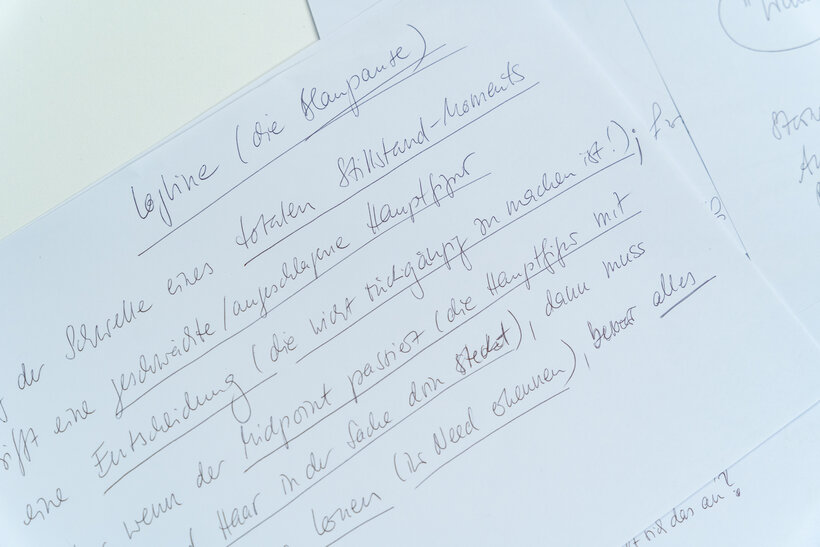 Logline (die Blaupause)
der Schwelle eines totalen Stillstand-Moments
trifft eine geschwächte/angeschlagene Hauptfigur
eine Entscheidung (die nicht rückgängig zu machen ist!);
wenn der Midpoint passiert (die Hauptfigur mit
Haar in der Sache drin steckt), dann muss
lernen (ihr Need erkennen), bevor alles
ist das an?